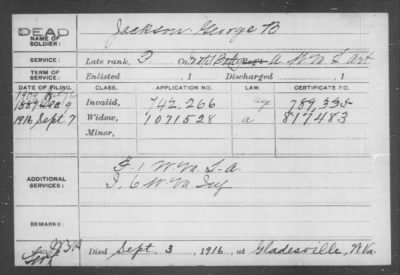 DEAD
NAME OF SOLDIER: Jackson George B
SERVICE: Late rank, P Co. A W Va L Art
TERM OF SERVICE: Enlisted , 1 Discharged , 1
DATE OF FILING. CLASS. APPLICATION NO. LAW. CERTIFICATE NO.
1889 Dec 9 Invalid, 742,266 789,335
1916 Sept 7 Widow, 1071528 a 817483
Minor,
F. 1 W Va L A
ADDITIONAL SERVICES: I, 6 W Va Inf
REMARKS:
Died Sept. 3, 1916, at Gladesville, W Va.